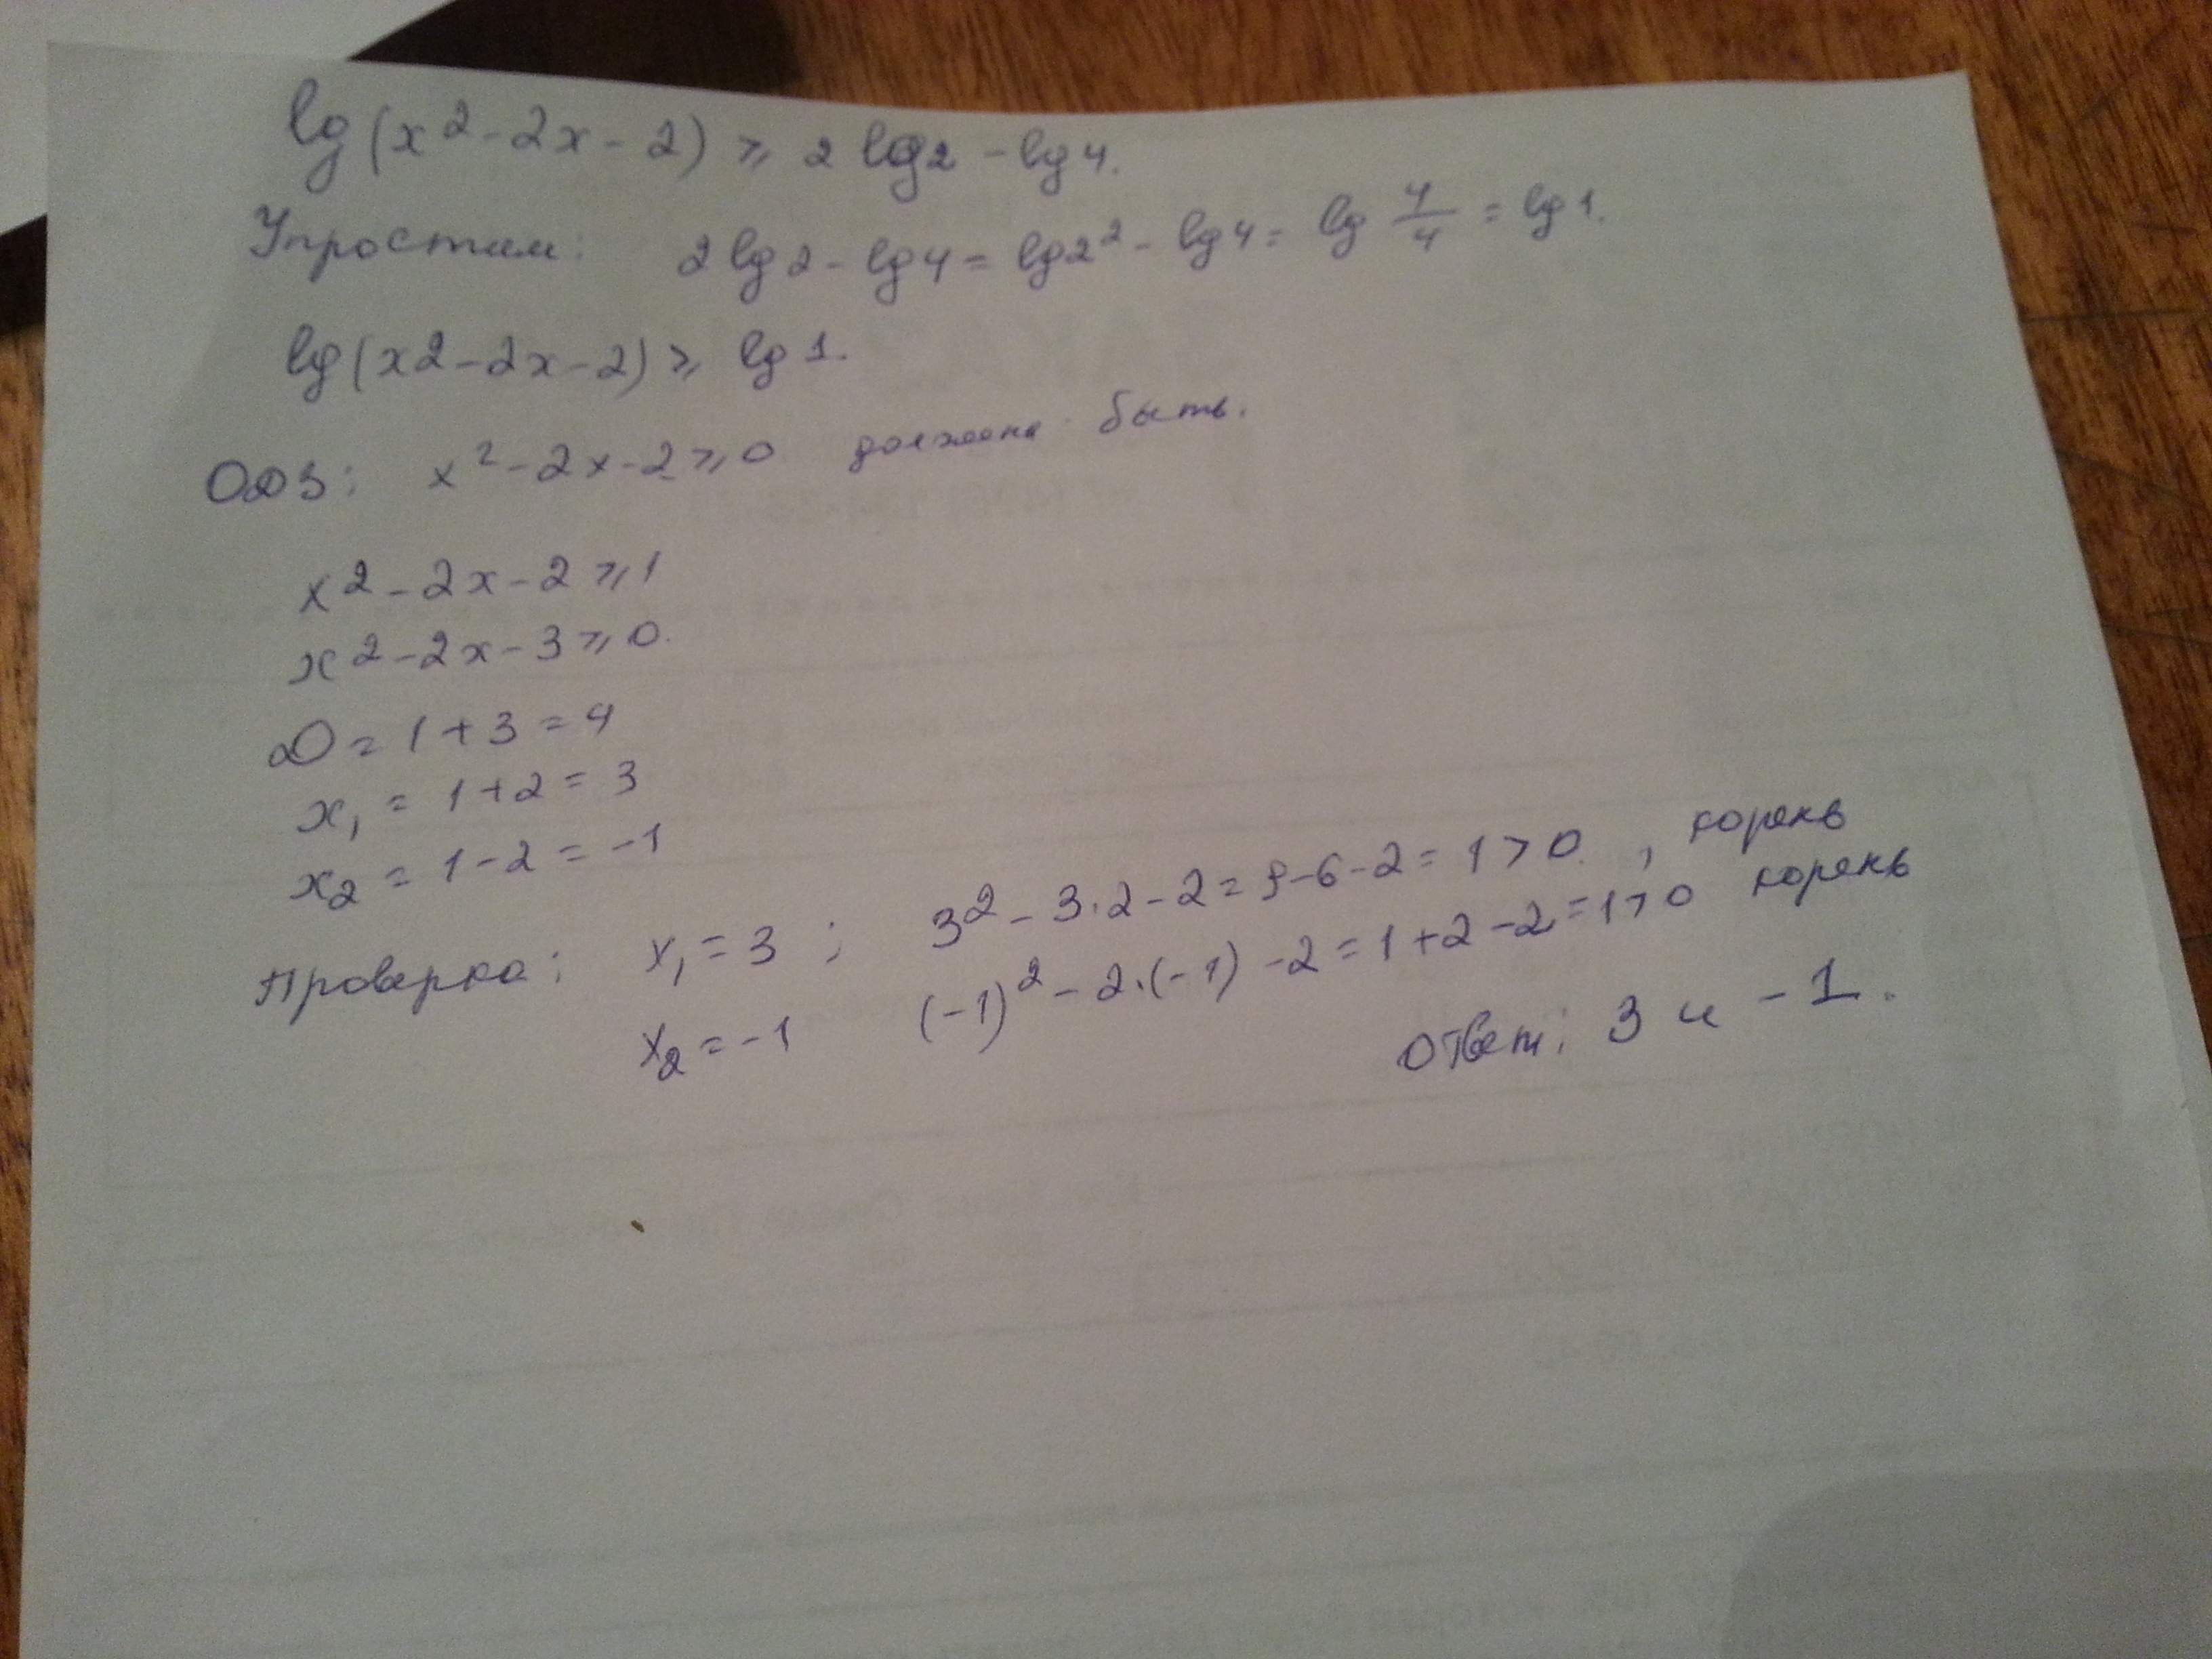 lg(x² - 2x - 2) ≥ 2 lg2 - lg4.
Упростим: 2lg2 - lg4 = lg2² - lg4 = lg 4/4 = lg1.
lg(x2 - 2x - 2) ≥ lg1.
ОДЗ: x² - 2x - 2 ≥ 0 должно быть.
x² - 2x - 2 ≥ 1
x² - 2x - 3 ≥ 0.
D = 1 + 3 = 4
x₁ = 1 + 2 = 3
x₂ = 1 - 2 = -1
Проверка: x₁ = 3 ; 3² - 3·2 - 2 = 9 - 6 - 2 = 1 > 0. , корень
x₂ = -1 (-1)² - 2·(-1) - 2 = 1 + 2 - 2 = 1 > 0 корень
Ответ: 3 и -1.